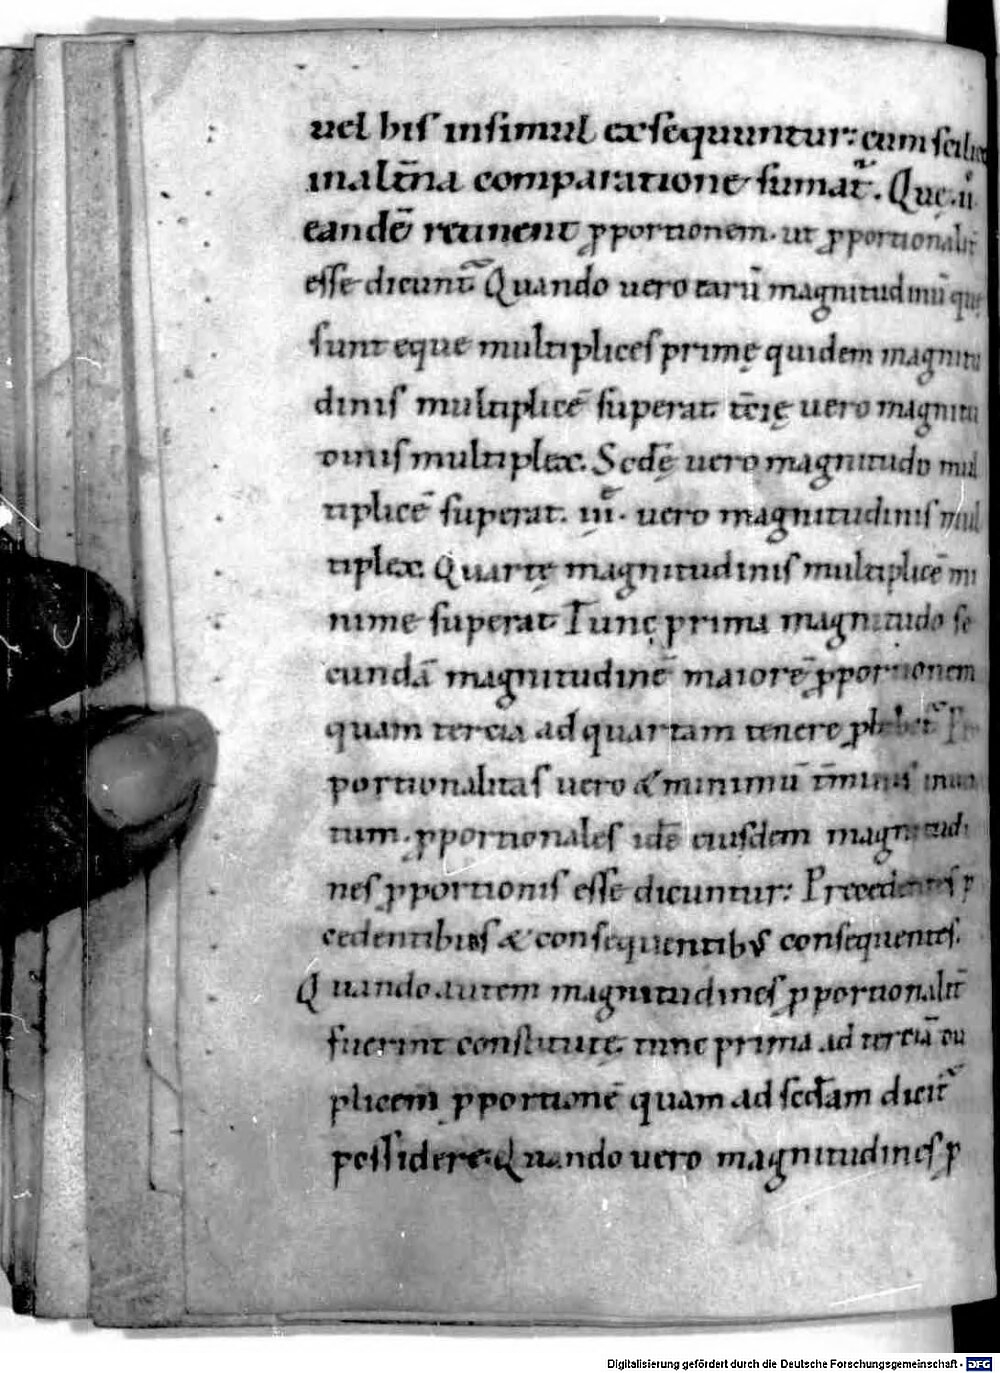 uel his insimul exsequuntur: cum scilic
in alt̄na comparatione sumat᷑. Quę. ū
eandē retinent ꝓportionem. ut ꝓportionalit̄
esse dicunt᷑ Quando uero earū magnitudinū quę
sunt eque multiplices primę quidem magnitu
dinis multiplicē superat. t̄cię uero magnitu
dinis multiplex. Scd̄ę uero magnitudo mul
tiplicē superat. iiiię. uero magnitudinis mul
tiplex. Quartę magnitudinis multiplicē mi
nime superat Tunc prima magnitudo se
cundā magnitudinē maiorē ꝓportionem
quam tercia ad quartam tenere ꝑhibet᷑ Pro
portionalitas uero & minimū t̄minus
tum. ꝓportionales idē eiusdem magnitudi
nes ꝓportionis esse dicuntur: Precedentes p
cedentibus & consequentibus consequentes.
Quando autem magnitudines ꝓportionalit̄
fuerint constitutę. tunc prima ad terciā du
plicem ꝓportionē quam ad scd̄am dicit᷑
possidere. Quando uero magnitudines ꝓ
Digitalisierung gefördert durch die Deutsche Forschungsgemeinschaft - DFG